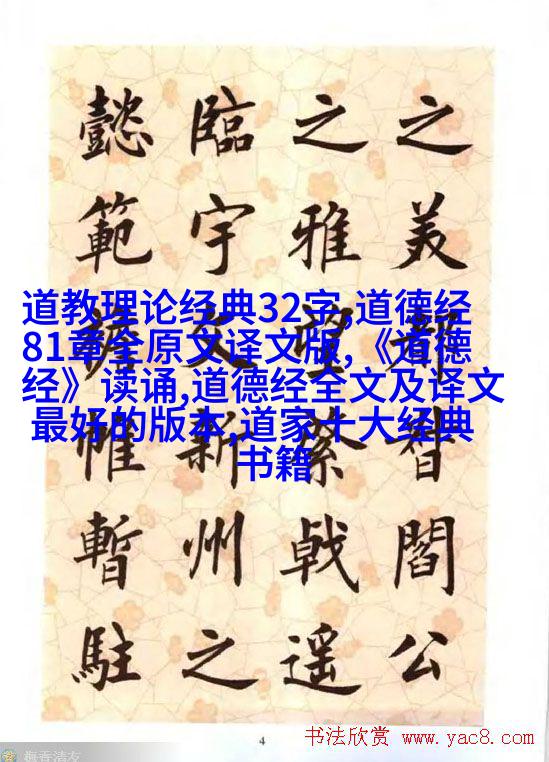 之美都督閻公
之雅望棨戟遥
臨宇文新州之
懿範襜帷暫駐
道教理论经典32字,道德经
81章全原文译文版,《道德
经》读诵,道德经全文及译文
最好的版本,道家十大经典
书籍
4
书法欣赏 www.yac8.com
梅香清友